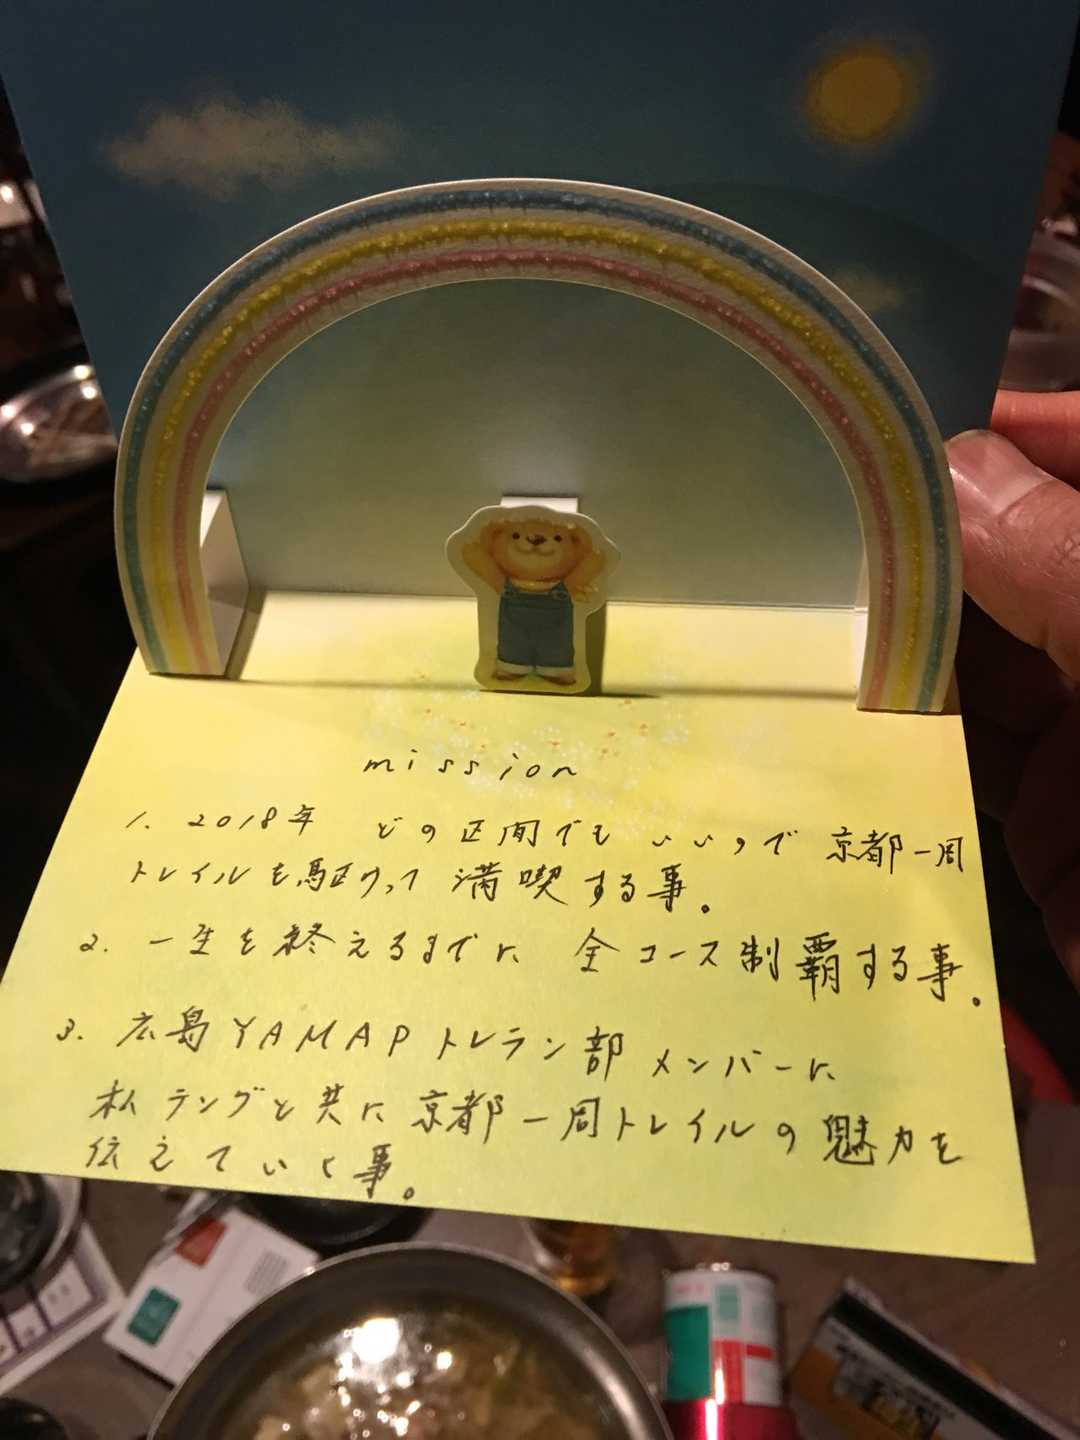 mission
1. 2018年 どの区間でもいいので 京都一周
トレイルを駆けって 満喫する事。
2. 一生を終えるまでに 全コース制覇する事。
3. 広島YAMAPトレラン部 メンバーに
私ラングと共に京都一周トレイルの魅力を
伝えていく事。